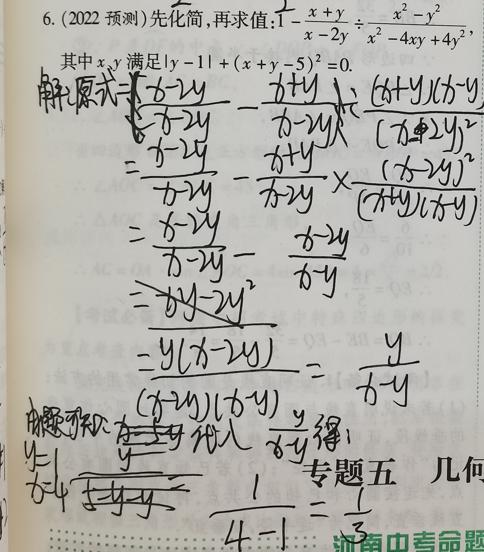 6. (2022 预测)先化简,再求值:1 - \frac{x+y}{x-2y} ÷ \frac{x²-y²}{x²-4xy+4y²},
其中 x,y 满足|y-1|+(x+y-5)²=0.
解:原式=(\frac{x-2y}{x-2y} - \frac{x+y}{x-2y}) ÷ \frac{(x+y)(x-y)}{(x-2y)²}
= \frac{x-2y}{x-2y} - \frac{x+y}{x-2y} × \frac{(x-2y)²}{(x+y)(x-y)}
= \frac{x-2y}{x-2y} - \frac{x-2y}{x-y}
= xy-2y²
= \frac{y(x-2y)}{(x-2y)(x-y)} = \frac{y}{x-y}
由题 代入 \frac{y}{x-y} 得:
y=1
x=4
\frac{1}{4-1} = \frac{1}{3}
专题五 几何
河南中考命题